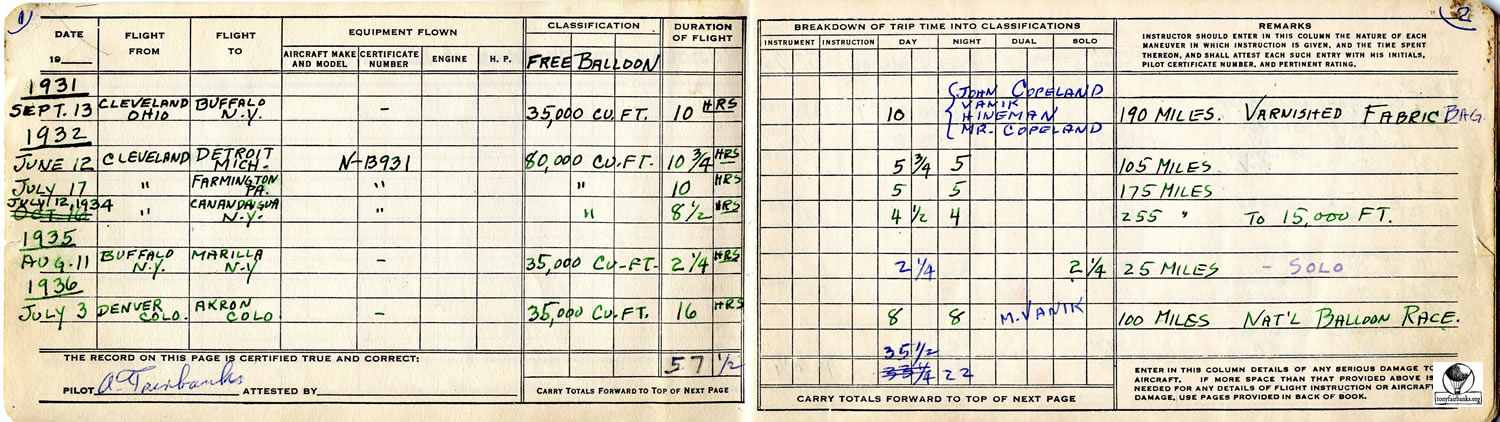 1
DATE
19
FLIGHT FROM
FLIGHT TO
EQUIPMENT FLOWN
AIRCRAFT MAKE AND MODEL
CERTIFICATE NUMBER
ENGINE
H. P.
CLASSIFICATION
FREE BALLOON
DURATION OF FLIGHT
1931
SEPT. 13 CLEVELAND OHIO BUFFALO N.Y. – 35,000 CU. FT. 10 HRS
1932
JUNE 12 CLEVELAND DETROIT MICH. N-13931 80,000 CU-FT. 10 3/4 HRS
JULY 17 " FARMINGTON PA. " " 10 HRS
JULY 12, 1934 " CANANDAIGUA N.Y. " " 8 1/2 HRS
OCT 16
1935
AUG. 11 BUFFALO N.Y. MARILLA N-Y – 35,000 CU-FT- 2 1/4 HRS
1936
JULY 3 DENVER COLO. AKRON COLO – 35,000 CU. FT. 16 HRS
THE RECORD ON THIS PAGE IS CERTIFIED TRUE AND CORRECT:
57 1/2
PILOT A Fairbanks ATTESTED BY
CARRY TOTALS FORWARD TO TOP OF NEXT PAGE
2
BREAKDOWN OF TRIP TIME INTO CLASSIFICATIONS
INSTRUMENT INSTRUCTION DAY NIGHT DUAL SOLO
REMARKS
INSTRUCTOR SHOULD ENTER IN THIS COLUMN THE NATURE OF EACH
MANEUVER IN WHICH INSTRUCTION IS GIVEN, AND THE TIME SPENT
THEREON, AND SHALL ATTEST EACH SUCH ENTRY WITH HIS INITIALS,
PILOT CERTIFICATE NUMBER, AND PERTINENT RATING.
JOHN COPELAND
VANIK
HINEMAN
MR. COPELAND
10 190 MILES. VARNISHED FABRIC BAG.
5 3/4 5 105 MILES
5 5 175 MILES
4 1/2 4 255 " TO 15,000 FT.
2 1/4 2 1/4 25 MILES – SOLO
8 8 M. VANIK 100 MILES NAT'L BALLOON RACE.
35 1/2
22
CARRY TOTALS FORWARD TO TOP OF NEXT PAGE
ENTER IN THIS COLUMN DETAILS OF ANY SERIOUS DAMAGE TO
AIRCRAFT. IF MORE SPACE THAN THAT PROVIDED ABOVE IS
NEEDED FOR ANY DETAILS OF FLIGHT INSTRUCTION OR AIRCRAFT
DAMAGE, USE PAGES PROVIDED IN BACK OF BOOK.
tonyfairbanks.org